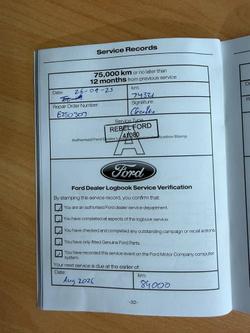 Service Records
75,000 km or no later than
12 months from previous service
Date: 26-09-25
km: 74321
Repair Order Number
Signature
Service Type
REBEL FORD
41080
A
Ford
Ford Dealer Logbook Service Verification
By stamping this service record, you confirm that:
You are an authorised Ford dealer service department.
You have completed all aspects of the logbook service.
You have checked and completed any outstanding campaign or recall actions.
You have only fitted Genuine Ford Parts.
You have recorded this service event on the Ford Motor Company computer
system.
Your next service is due at the earlier of:
Date: Aug 2026
km: 89000
-32-